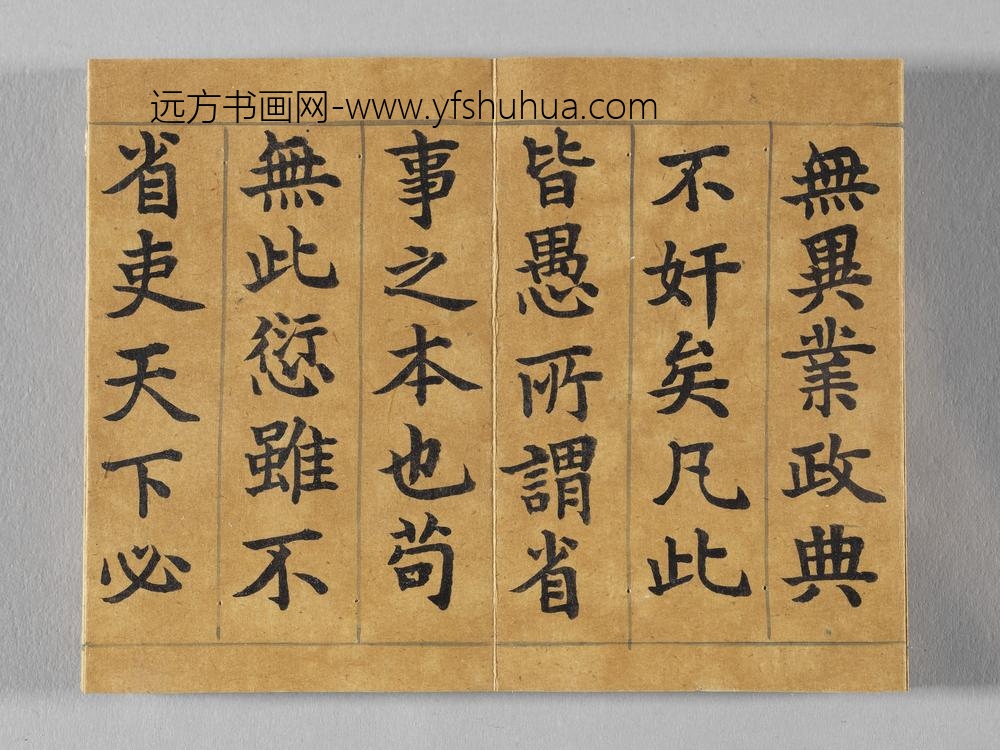 远方书画网-www.yfshuhua.com
無異業政典
不奸矣凡此
皆愚所謂省
事之本也苟
無此愆雖不
省吏天下必